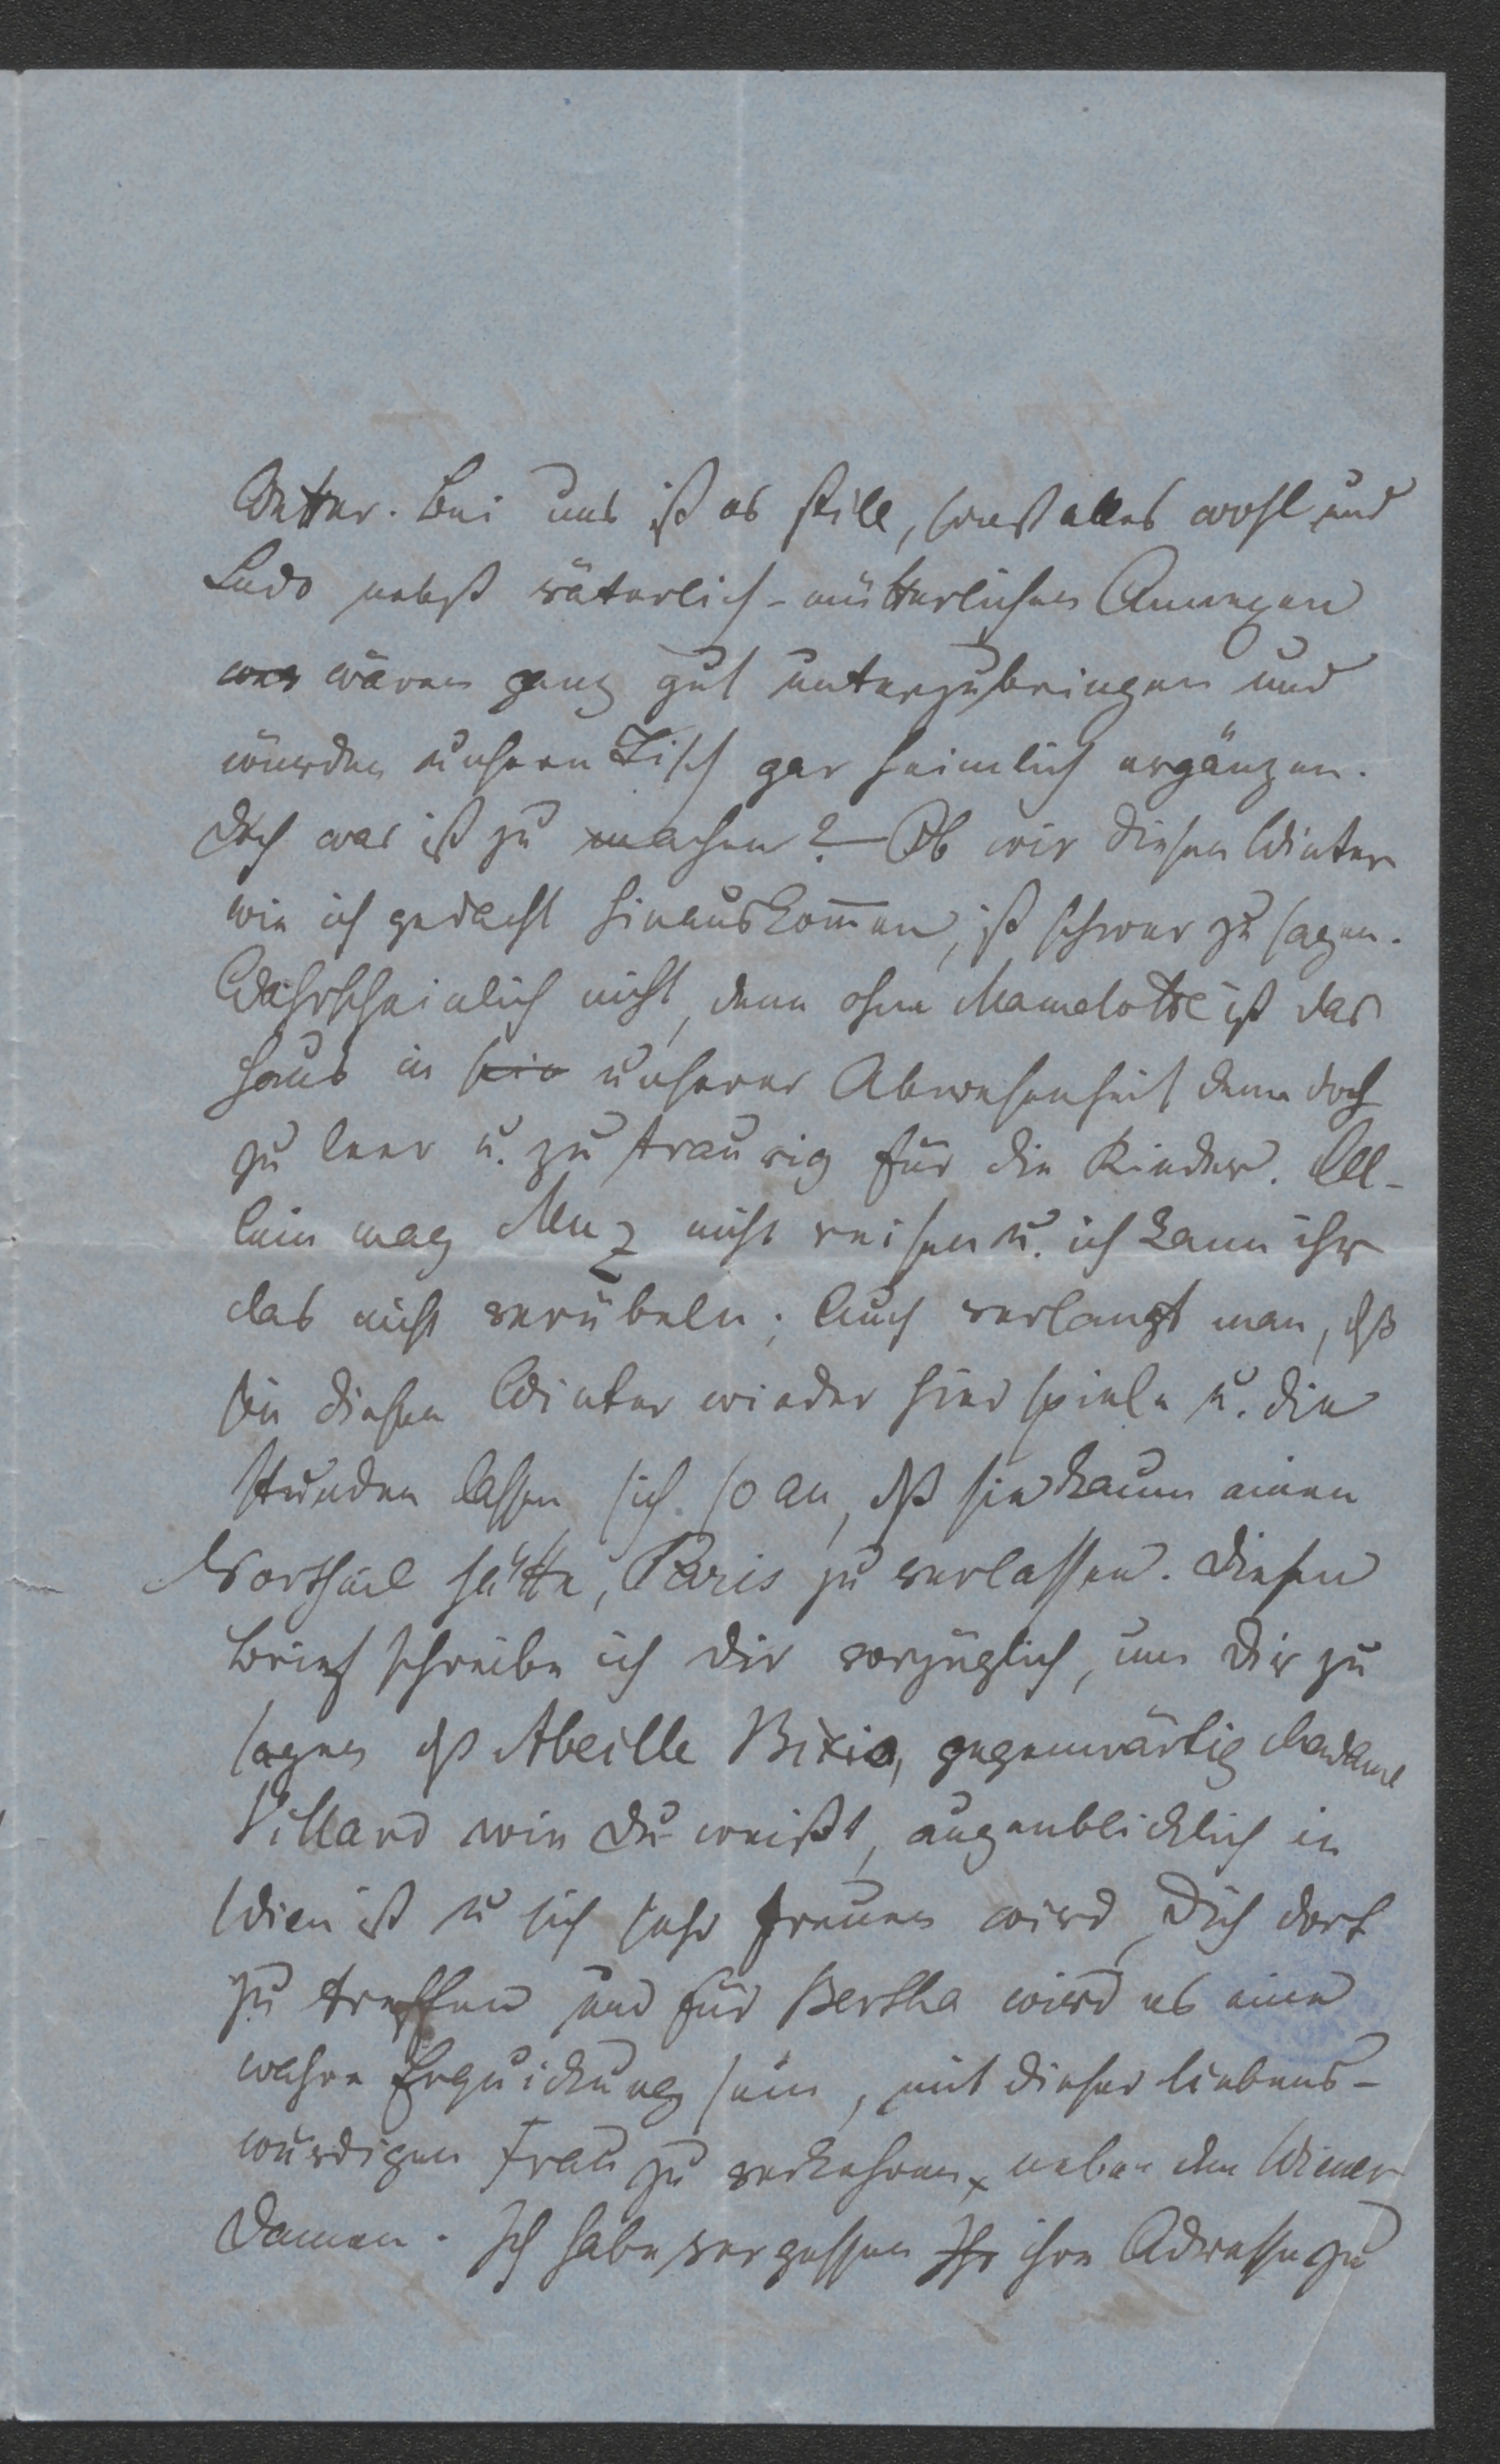 Wetter. Bei uns ist es still, sonst alles wohl und
Ludo nebst väterlich-mütterlichen Annexen
wären ganz gut unterzubringen und
würden unsern Tisch gar heimlich ergänzen.
Doch was ist zu machen? – Ob wir diesen Winter
wie ich gedacht hinauskom̅en, ist schwer zu sagen.
Wahrscheinlich nicht, denn ohne Mamelotte ist das
Haus in unserer Abwesenheit denn doch
zu leer u. zu traurig für die Kinder. All-
lein mag nicht reisen u. ich kann ihr
das nicht verübeln; Auch verlangt man, dß
sie diesen Winter wieder hier spiele u. die
Stunden lassen sich so an, dß sie kaum einen
Vortheil hätte, Paris zu verlassen. Diesen
Brief schreibe ich Dir vorzüglich, um Dir zu
sagen dß Abeille Bixio, gegenwärtig Madame
Villard wie Du weißt, augenblicklich in
Wien ist u sich sehr freuen wird, Dich dort
zu treffen und für Bertha wird es eine
wahre Erquickung sein, mit dieser liebens-
würdigen Frau zu verkehren, neben den Wiener
Damen. Ich habe vergessen ihre Adresse zu